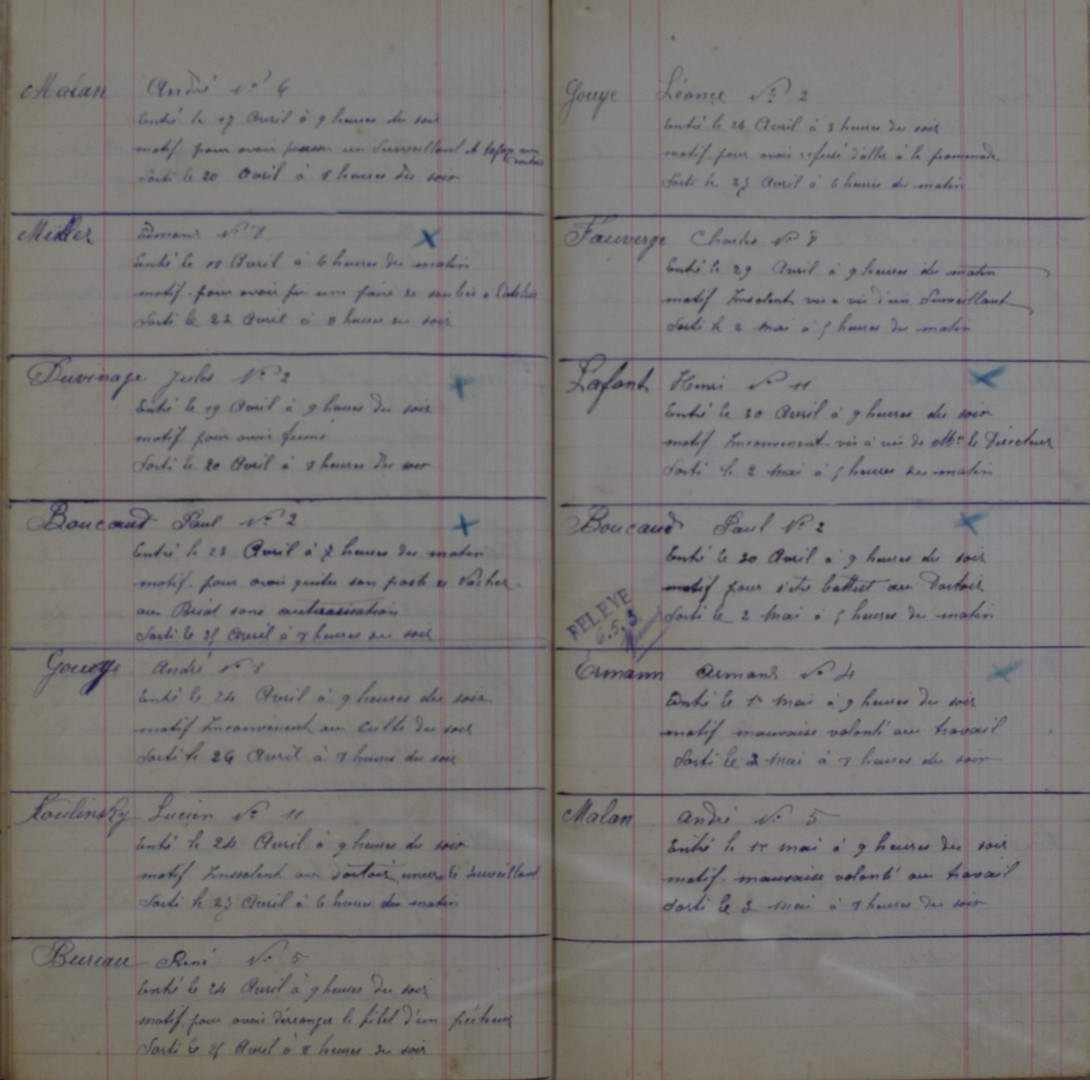 Malan André N° 6
Entré le 17 Avril à 9 heures du soir
motif pour avoir un Surveillant et
Sorti le 20 Avril à 8 heures du soir
Miller Edmond N° 8
Entré le 18 Avril à 6 heures du matin
motif pour avoir une paire de a l'atelier
Sorti le 22 Avril à 8 heures du soir
Duvinage Jules N° 2
Entré le 19 Avril à 9 heures du soir
motif pour avoir fumé
Sorti le 20 Avril à 8 heures du soir
Boucaud Paul N° 2
Entré le 23 Avril à 7 heures du matin
motif pour avoir quitté son poste de Vacher
au sans autorisation
Sorti le 25 Avril à 7 heures du soir
Gouye André N° 8
Entré le 24 Avril à 9 heures du soir
motif Inconvenent au Culte du soir
Sorti le 26 Avril à 7 heures du soir
Koulinsky Lucien N° 11
Entré le 24 Avril à 9 heures du soir
Motif Inssolent au dortoir envers le Surveillant
Sorti le 27 Avril à 6 heures du matin
Bureau René N° 5
Entré le 24 Avril à 9 heures du soir
motif pour avoir dérranger le filet d'un pécheur
Sorti le 25 Avril à 8 heures du soir
Gouye Léonce N° 2
Entré le 26 Avril à 3 heures du soir
motif pour avoir refusé d'aller à la promenade
Sorti le 27 Avril à 6 heures du matin
Fauverge Charles N° 8
Entré le 29 Avril à 9 heures du matin
motif Insolent vis a vis d'un Surveillant
Sorti le 2 Mai à 5 heures du matin
Lafont Henri N° 11
Entré le 30 Avril à 9 heures du soir
motif Inconvenent vis à vis de Mr le Directeur
Sorti le 2 Mai à 5 heures du matin
Boucaud Paul N° 2
Entré le 30 Avril à 9 heures du soir
motif pour s'etre battut au Dortoir
Sorti le 2 Mai à 5 heures du matin
RELEVE
6.5.3
Ermann Armand N° 4
Entré le 1r Mai à 9 heures du soir
motif mauvaise volonté au travail
Sorti le 2 Mai à 7 heures du soir
Malan André N° 5
Entré le 1r Mai à 9 heures du soir
motif mauvaise volonté au travail
Sorti le 2 Mai à 7 heures du soir